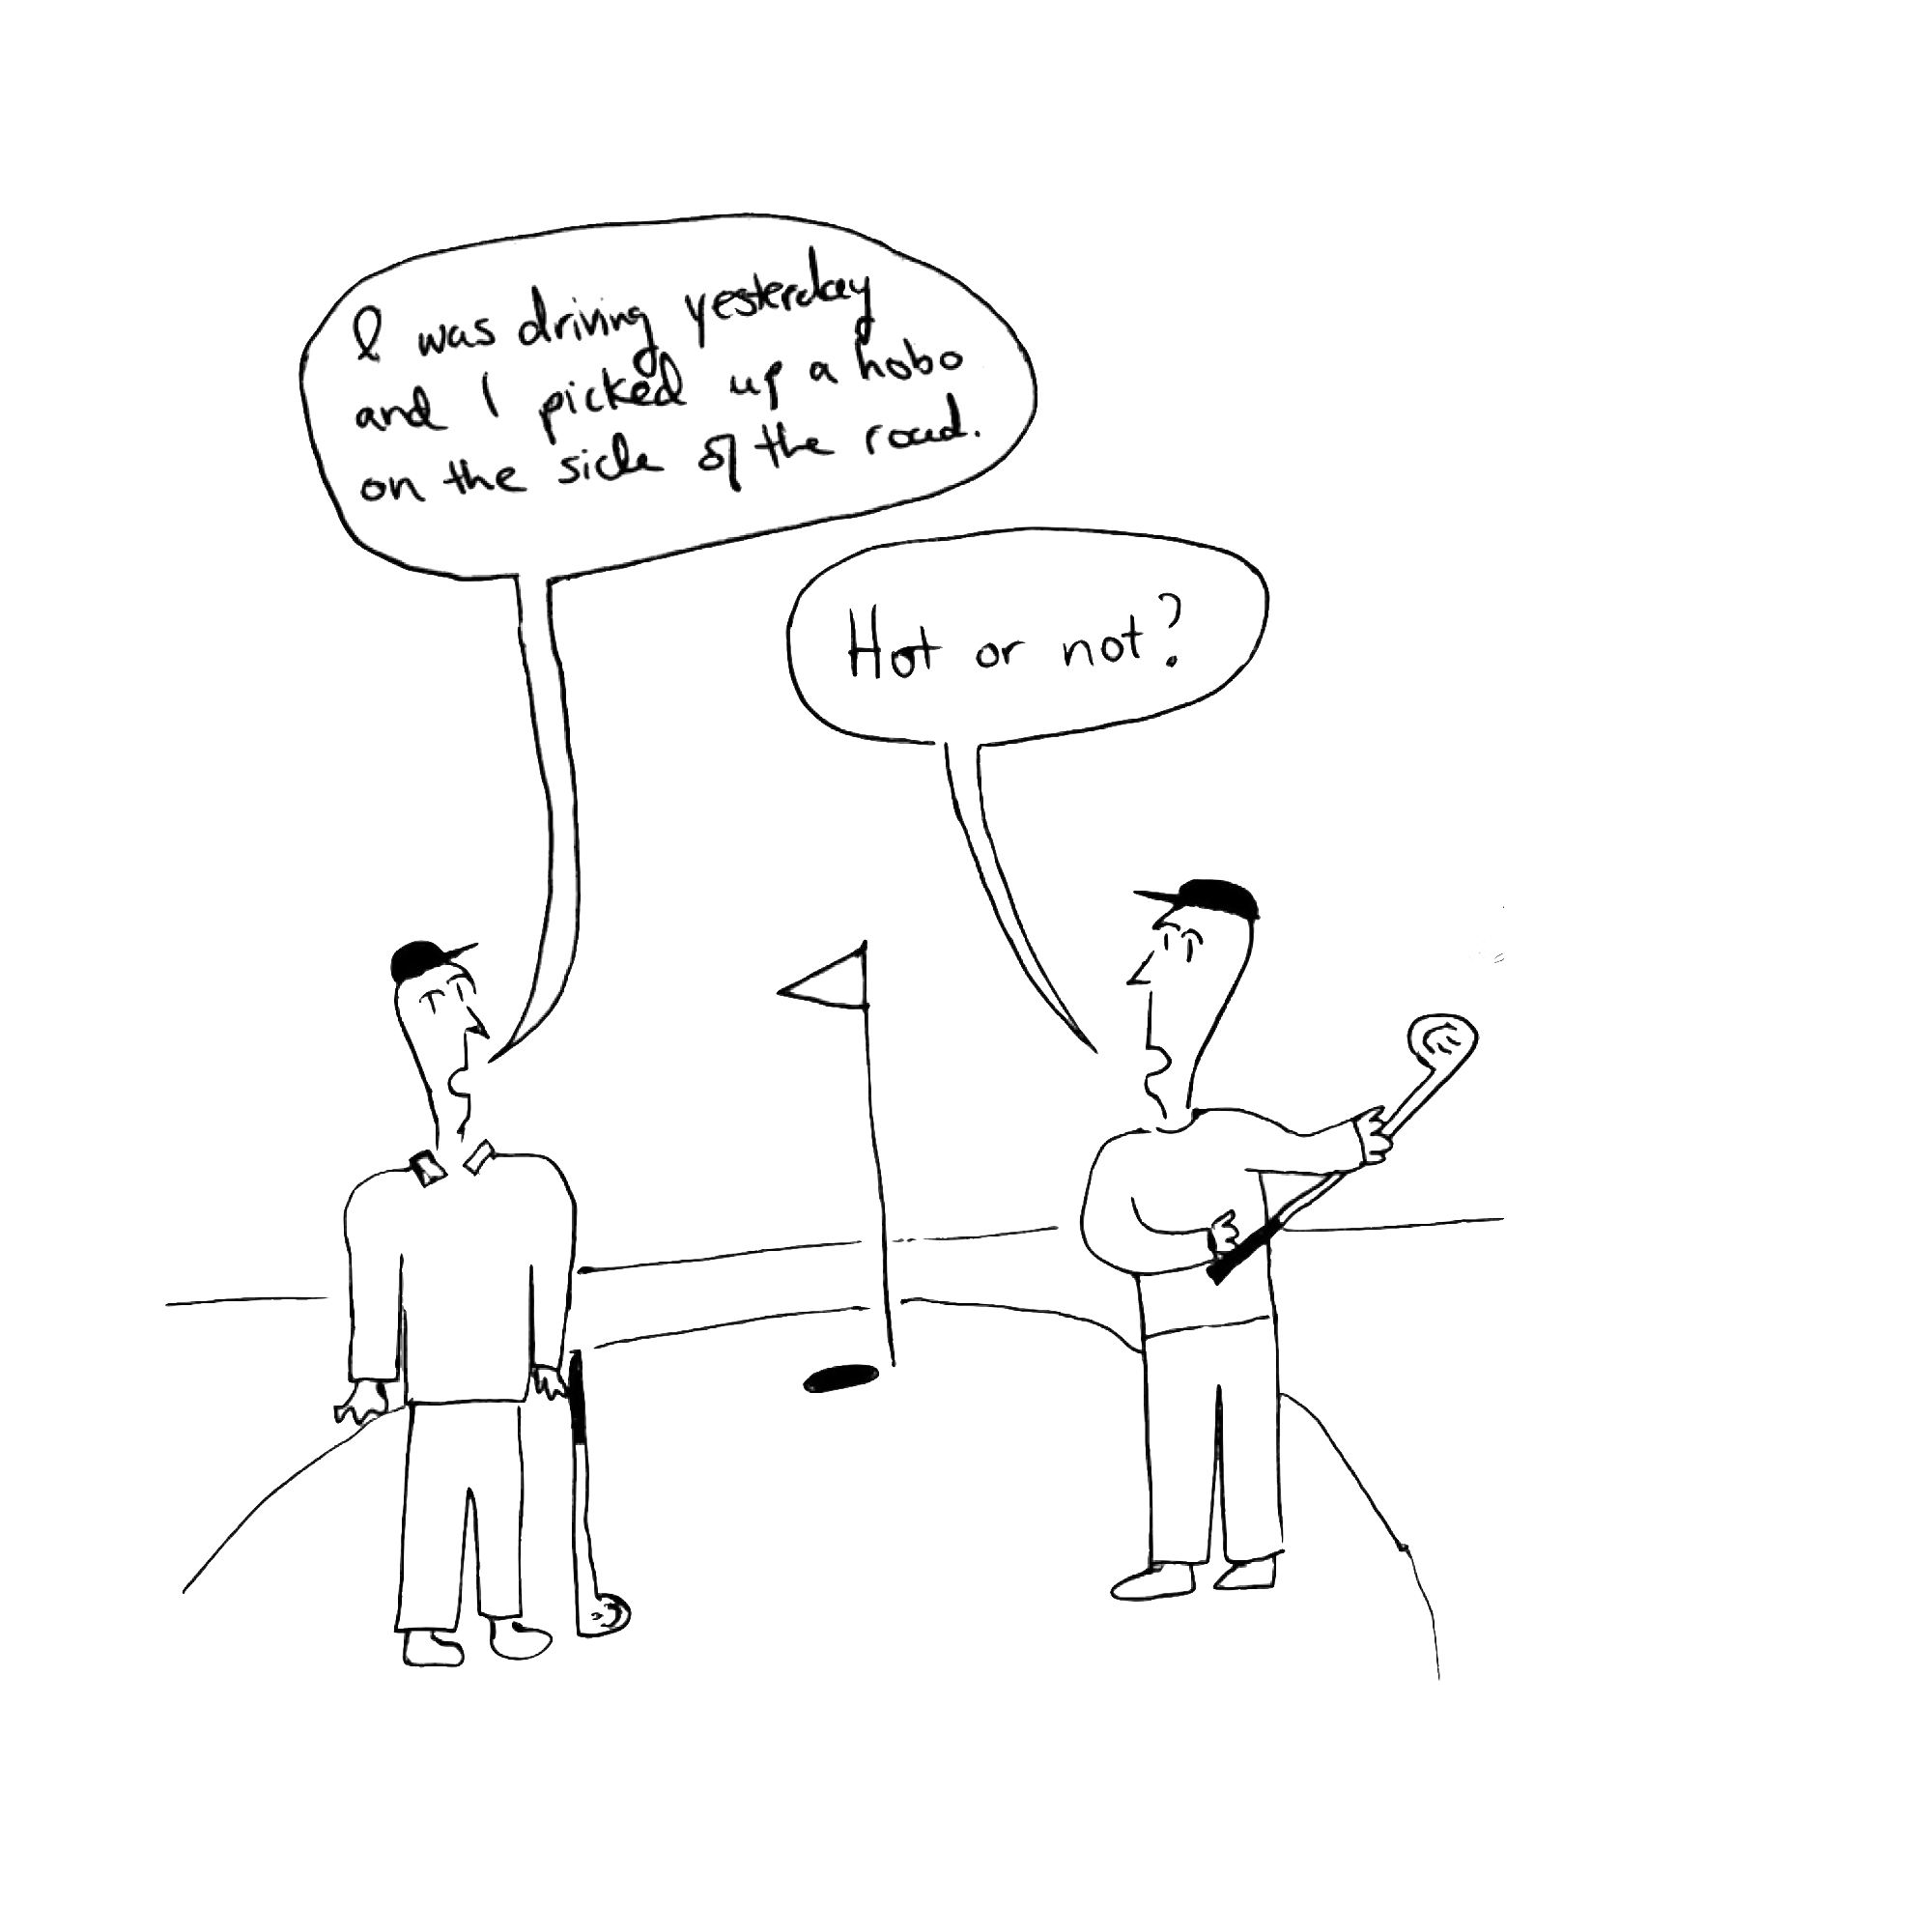 I was driving yesterday
and I picked up a hobo
on the side of the road.
Hot or not?